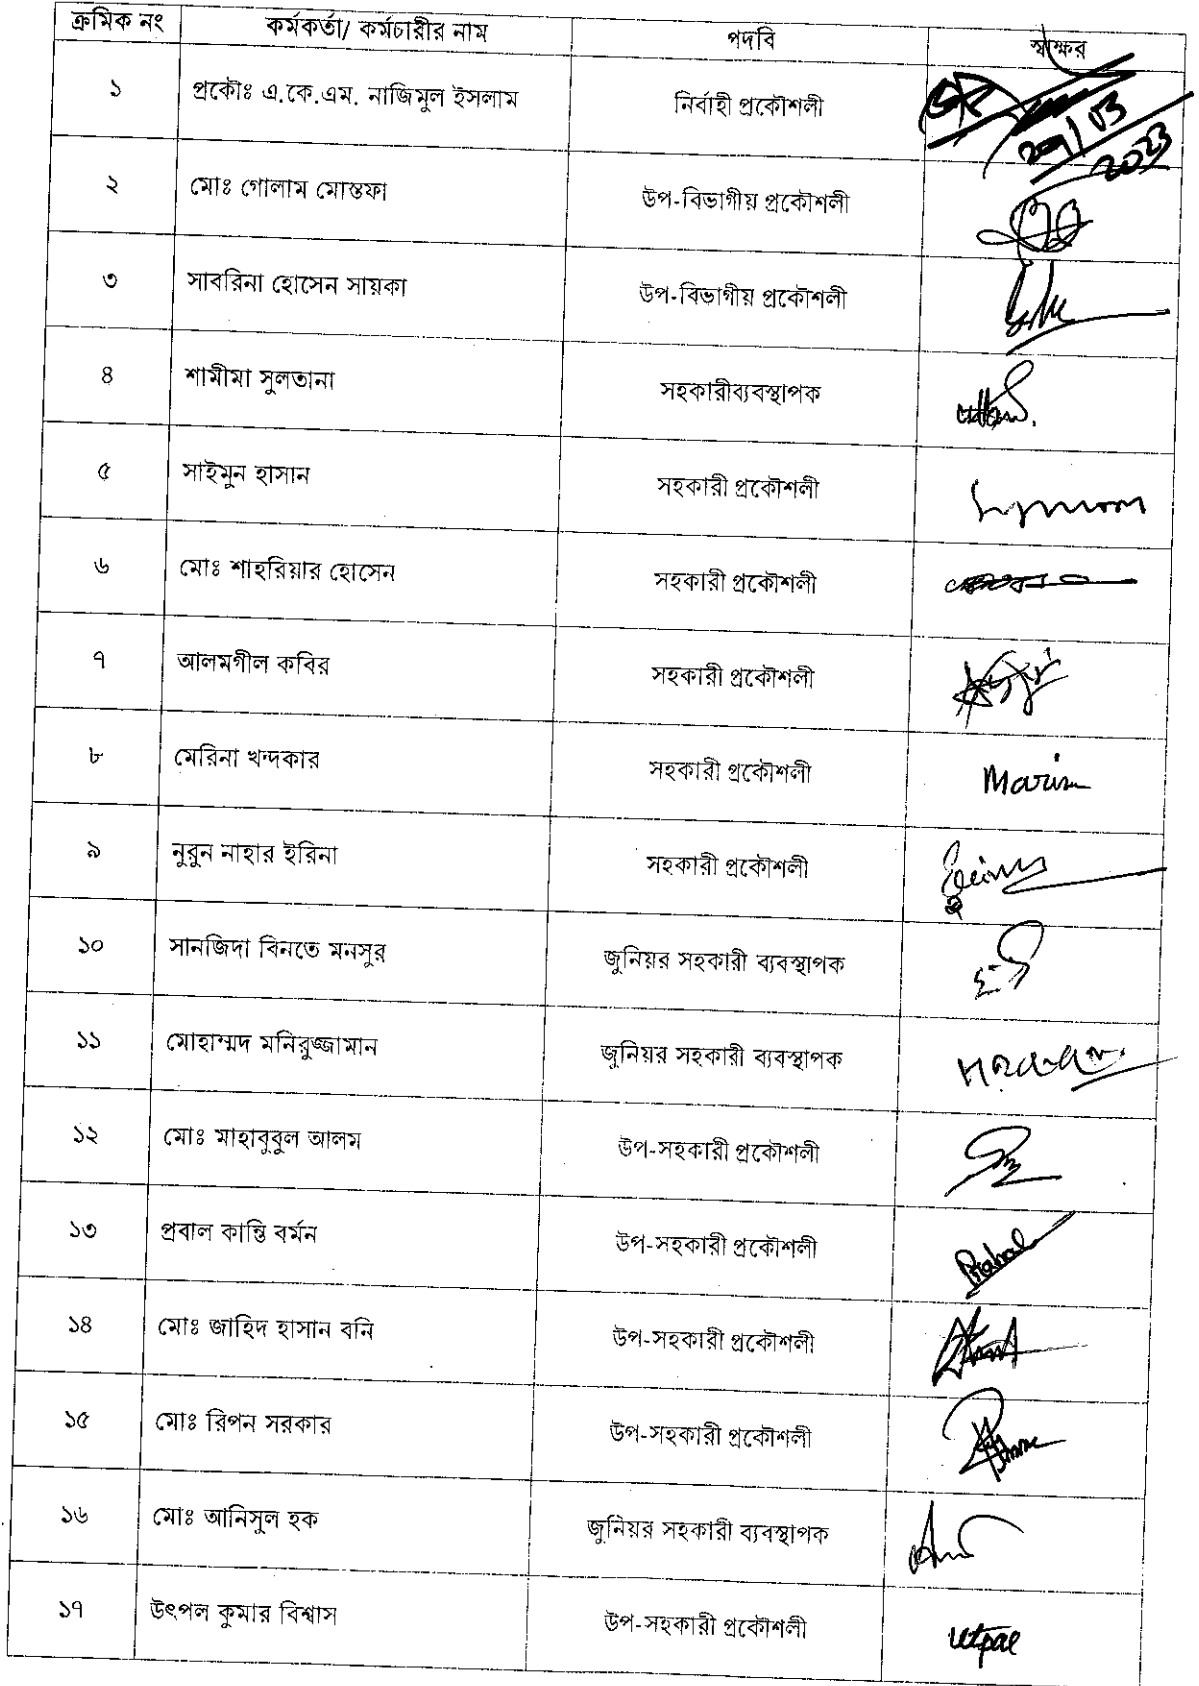 ক্রমিক নং কর্মকর্তা/ কর্মচারীর নাম পদবি স্বাক্ষর
১ প্রকৌঃ এ.কে.এম. নাজিমুল ইসলাম নির্বাহী প্রকৌশলী
২ মোঃ গোলাম মোস্তফা উপ-বিভাগীয় প্রকৌশলী
৩ সাবরিনা হোসেন সায়কা উপ-বিভাগীয় প্রকৌশলী
৪ শামীমা সুলতানা সহকারীব্যবস্থাপক
৫ সাইমুন হাসান সহকারী প্রকৌশলী
৬ মোঃ শাহরিয়ার হোসেন সহকারী প্রকৌশলী
৭ আলমগীল কবির সহকারী প্রকৌশলী
৮ মেরিনা খন্দকার সহকারী প্রকৌশলী
৯ নুরুন নাহার ইরিনা সহকারী প্রকৌশলী
১০ সানজিদা বিনতে মনসুর জুনিয়র সহকারী ব্যবস্থাপক
১১ মোহাম্মদ মনিরুজ্জামান জুনিয়র সহকারী ব্যবস্থাপক
১২ মোঃ মাহাবুবুল আলম উপ-সহকারী প্রকৌশলী
১৩ প্রবাল কান্তি বর্মন উপ-সহকারী প্রকৌশলী Prabal
১৪ মোঃ জাহিদ হাসান বনি উপ-সহকারী প্রকৌশলী
১৫ মোঃ রিপন সরকার উপ-সহকারী প্রকৌশলী
১৬ মোঃ আনিসুল হক জুনিয়র সহকারী ব্যবস্থাপক
১৭ উৎপল কুমার বিশ্বাস উপ-সহকারী প্রকৌশলী utpal